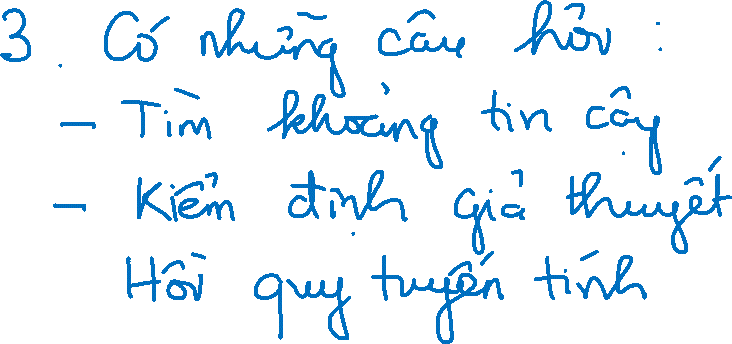 3. Có những câu hỏi:
- Tìm khoảng tin cậy
- Kiểm định giả thuyết
Hồi quy tuyến tính